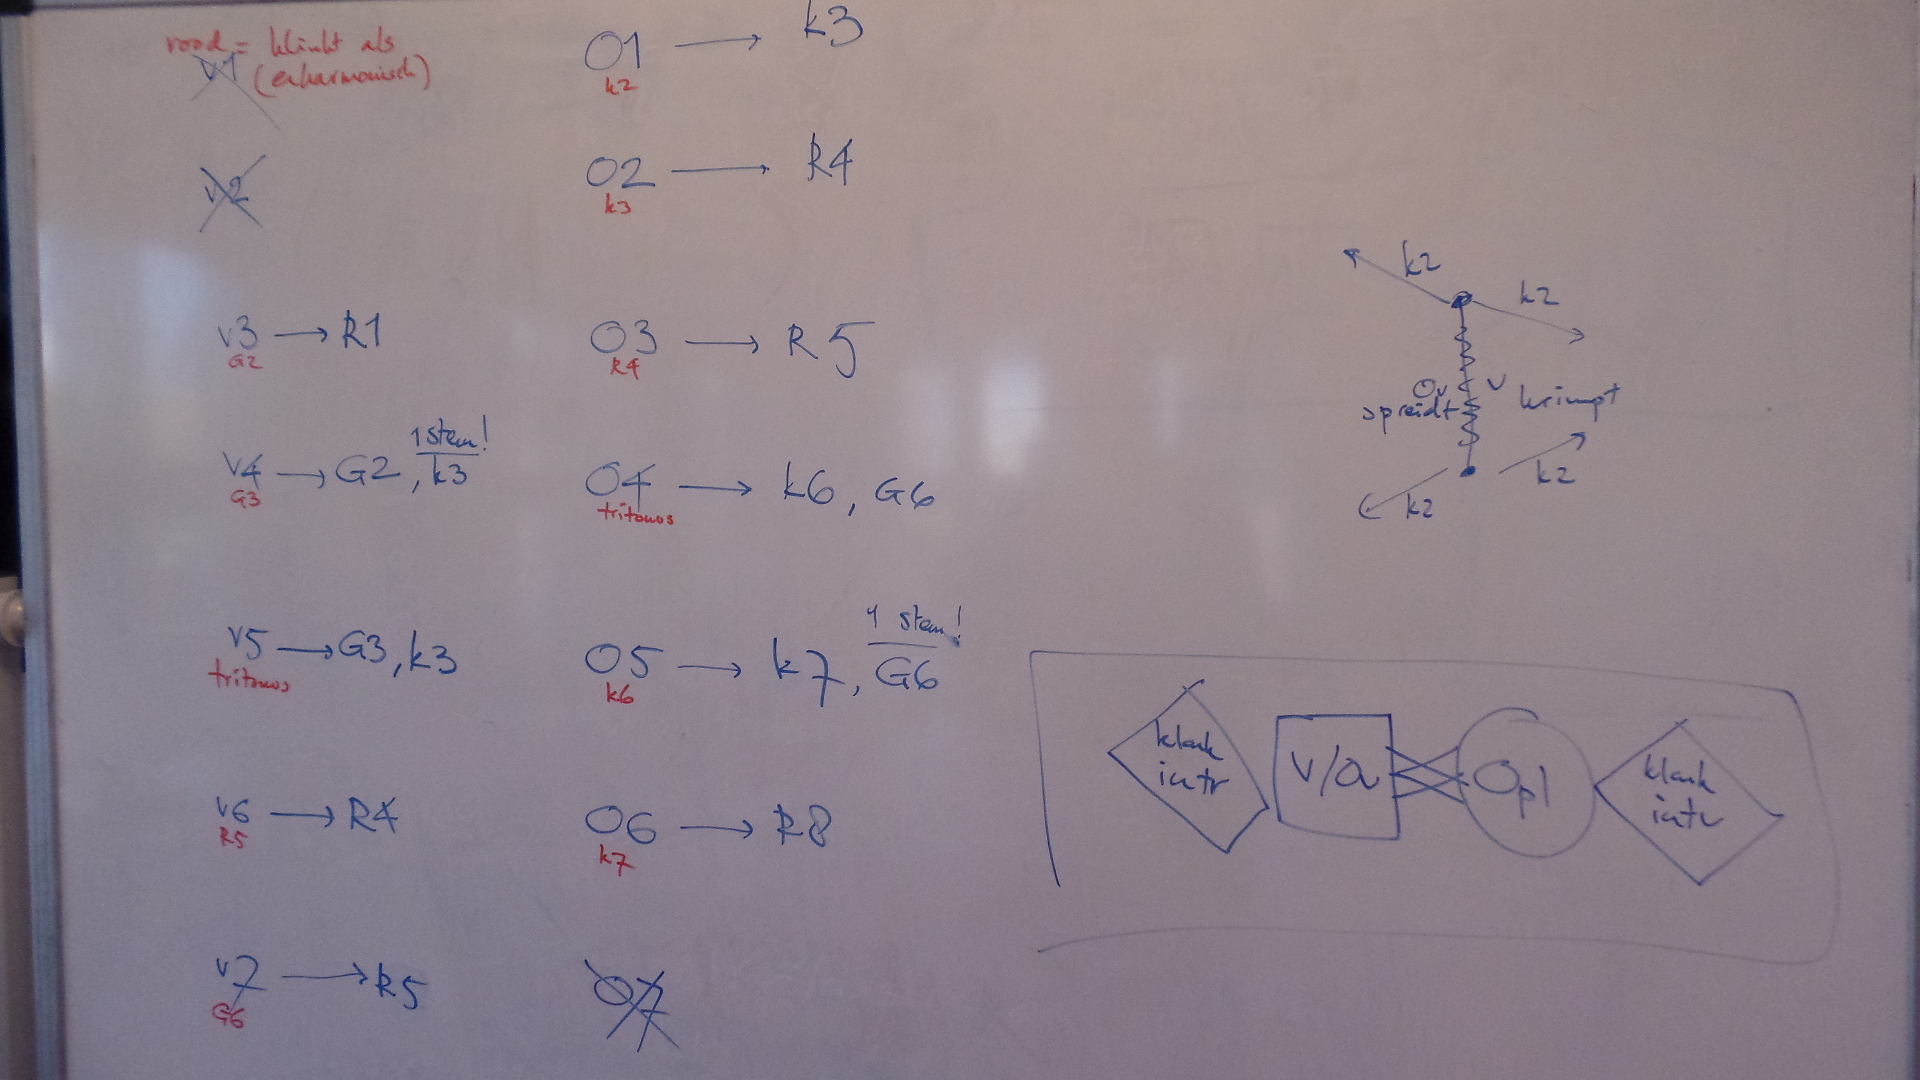 rood = klinkt als
(enharmonisch)
v1
v2
v3 → R1
G2
v4 → G2, k3
1 stem!
G3
v5 → G3, k3
tritonus
v6 → R4
R5
v7 → R5
G6
O1 → k3
k2
O2 → R4
k3
O3 → R5
R4
O4 → k6, G6
tritonus
O5 → k7, G6
1 stem!
k6
O6 → R8
k7
O7
k2
k2
Ov
v
spreidt
krimpt
k2
k2
klank
intr
V/Ov
Opl
klank
intv